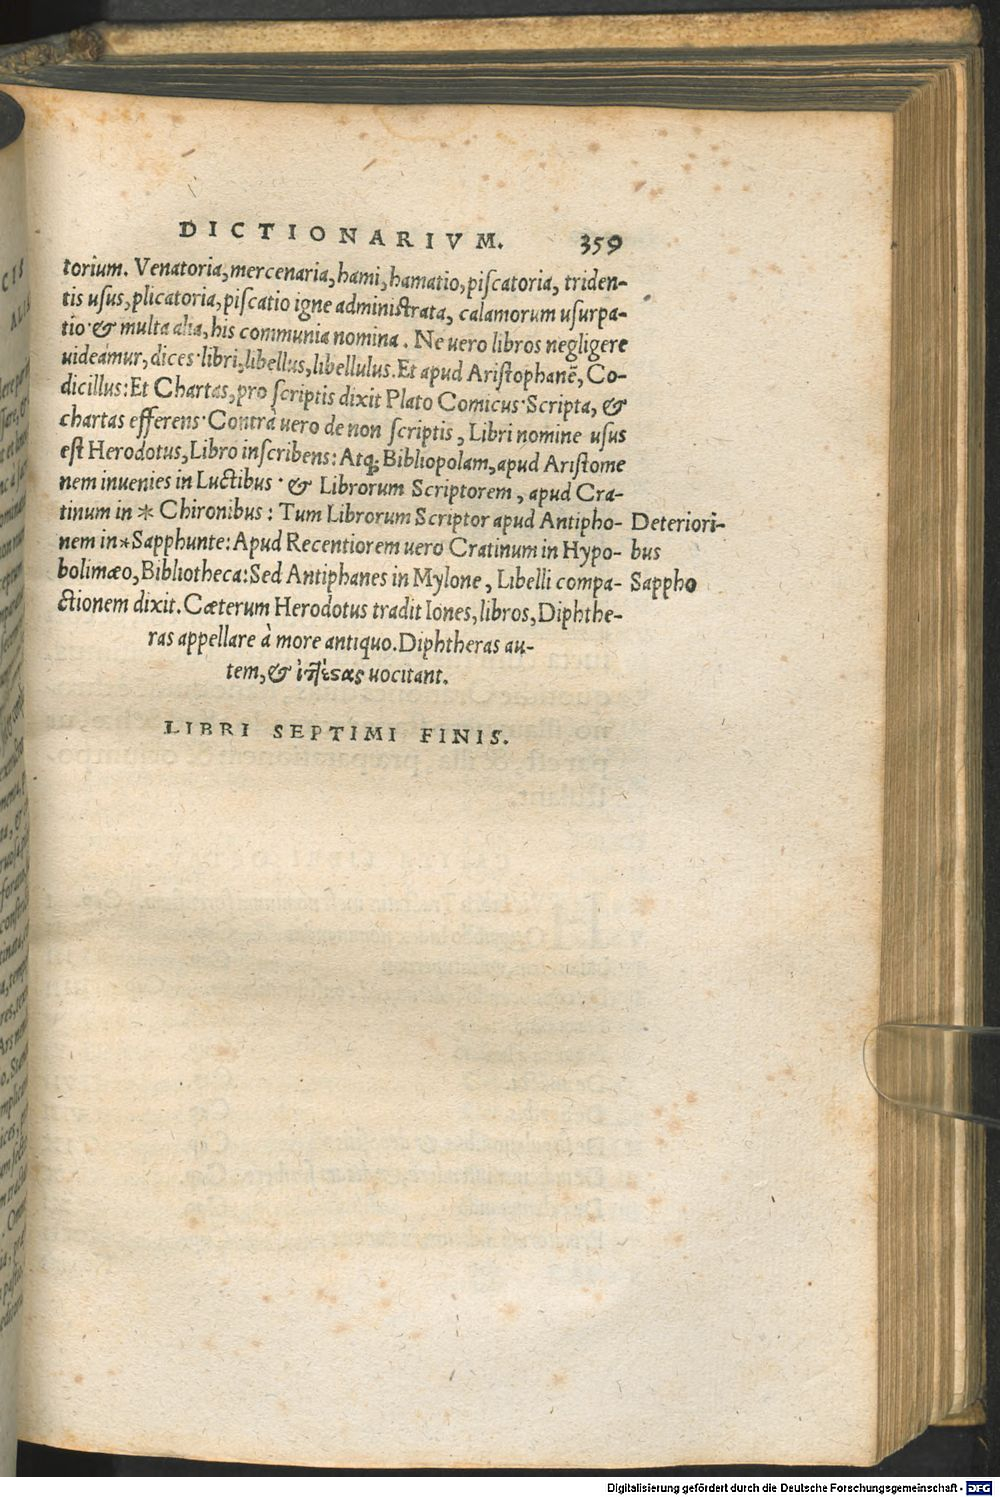 DICTIONARIVM. 359
torium. Venatoria, mercenaria, hami, hamatio, piſcatoria, triden-
tis uſus, plicatoria, piſcatio igne adminiſtrata, calamorum uſurpa-
tio· & multa alia, his communia nomina. Ne uero libros negligere
uideamur, dices· libri, libellus, libellulus. Et apud Ariſtophanē, Co-
dicillus: Et Chartas, pro ſcriptis dixit Plato Comicus· Scripta, &
chartas efferens· Contrà uero de non ſcriptis, Libri nomine uſus
eſt Herodotus, Libro inſcribens: Atq; Bibliopolam, apud Ariſtome
nem inuenies in Luctibus· & Librorum Scriptorem, apud Cra-
tinum in * Chironibus: Tum Librorum Scriptor apud Antipho- Deteriori-
nem in * Sapphunte: Apud Recentiorem uero Cratinum in Hypo- bus
bolimæo, Bibliotheca: Sed Antiphanes in Mylone, Libelli compa- Sappho
ctionem dixit. Cæterum Herodotus tradit Iones, libros, Diphthe-
ras appellare à more antiquo. Diphtheras au-
tem, & uocitant.
LIBRI SEPTIMI FINIS.
Digitalisierung gefördert durch die Deutsche Forschungsgemeinschaft - DFG